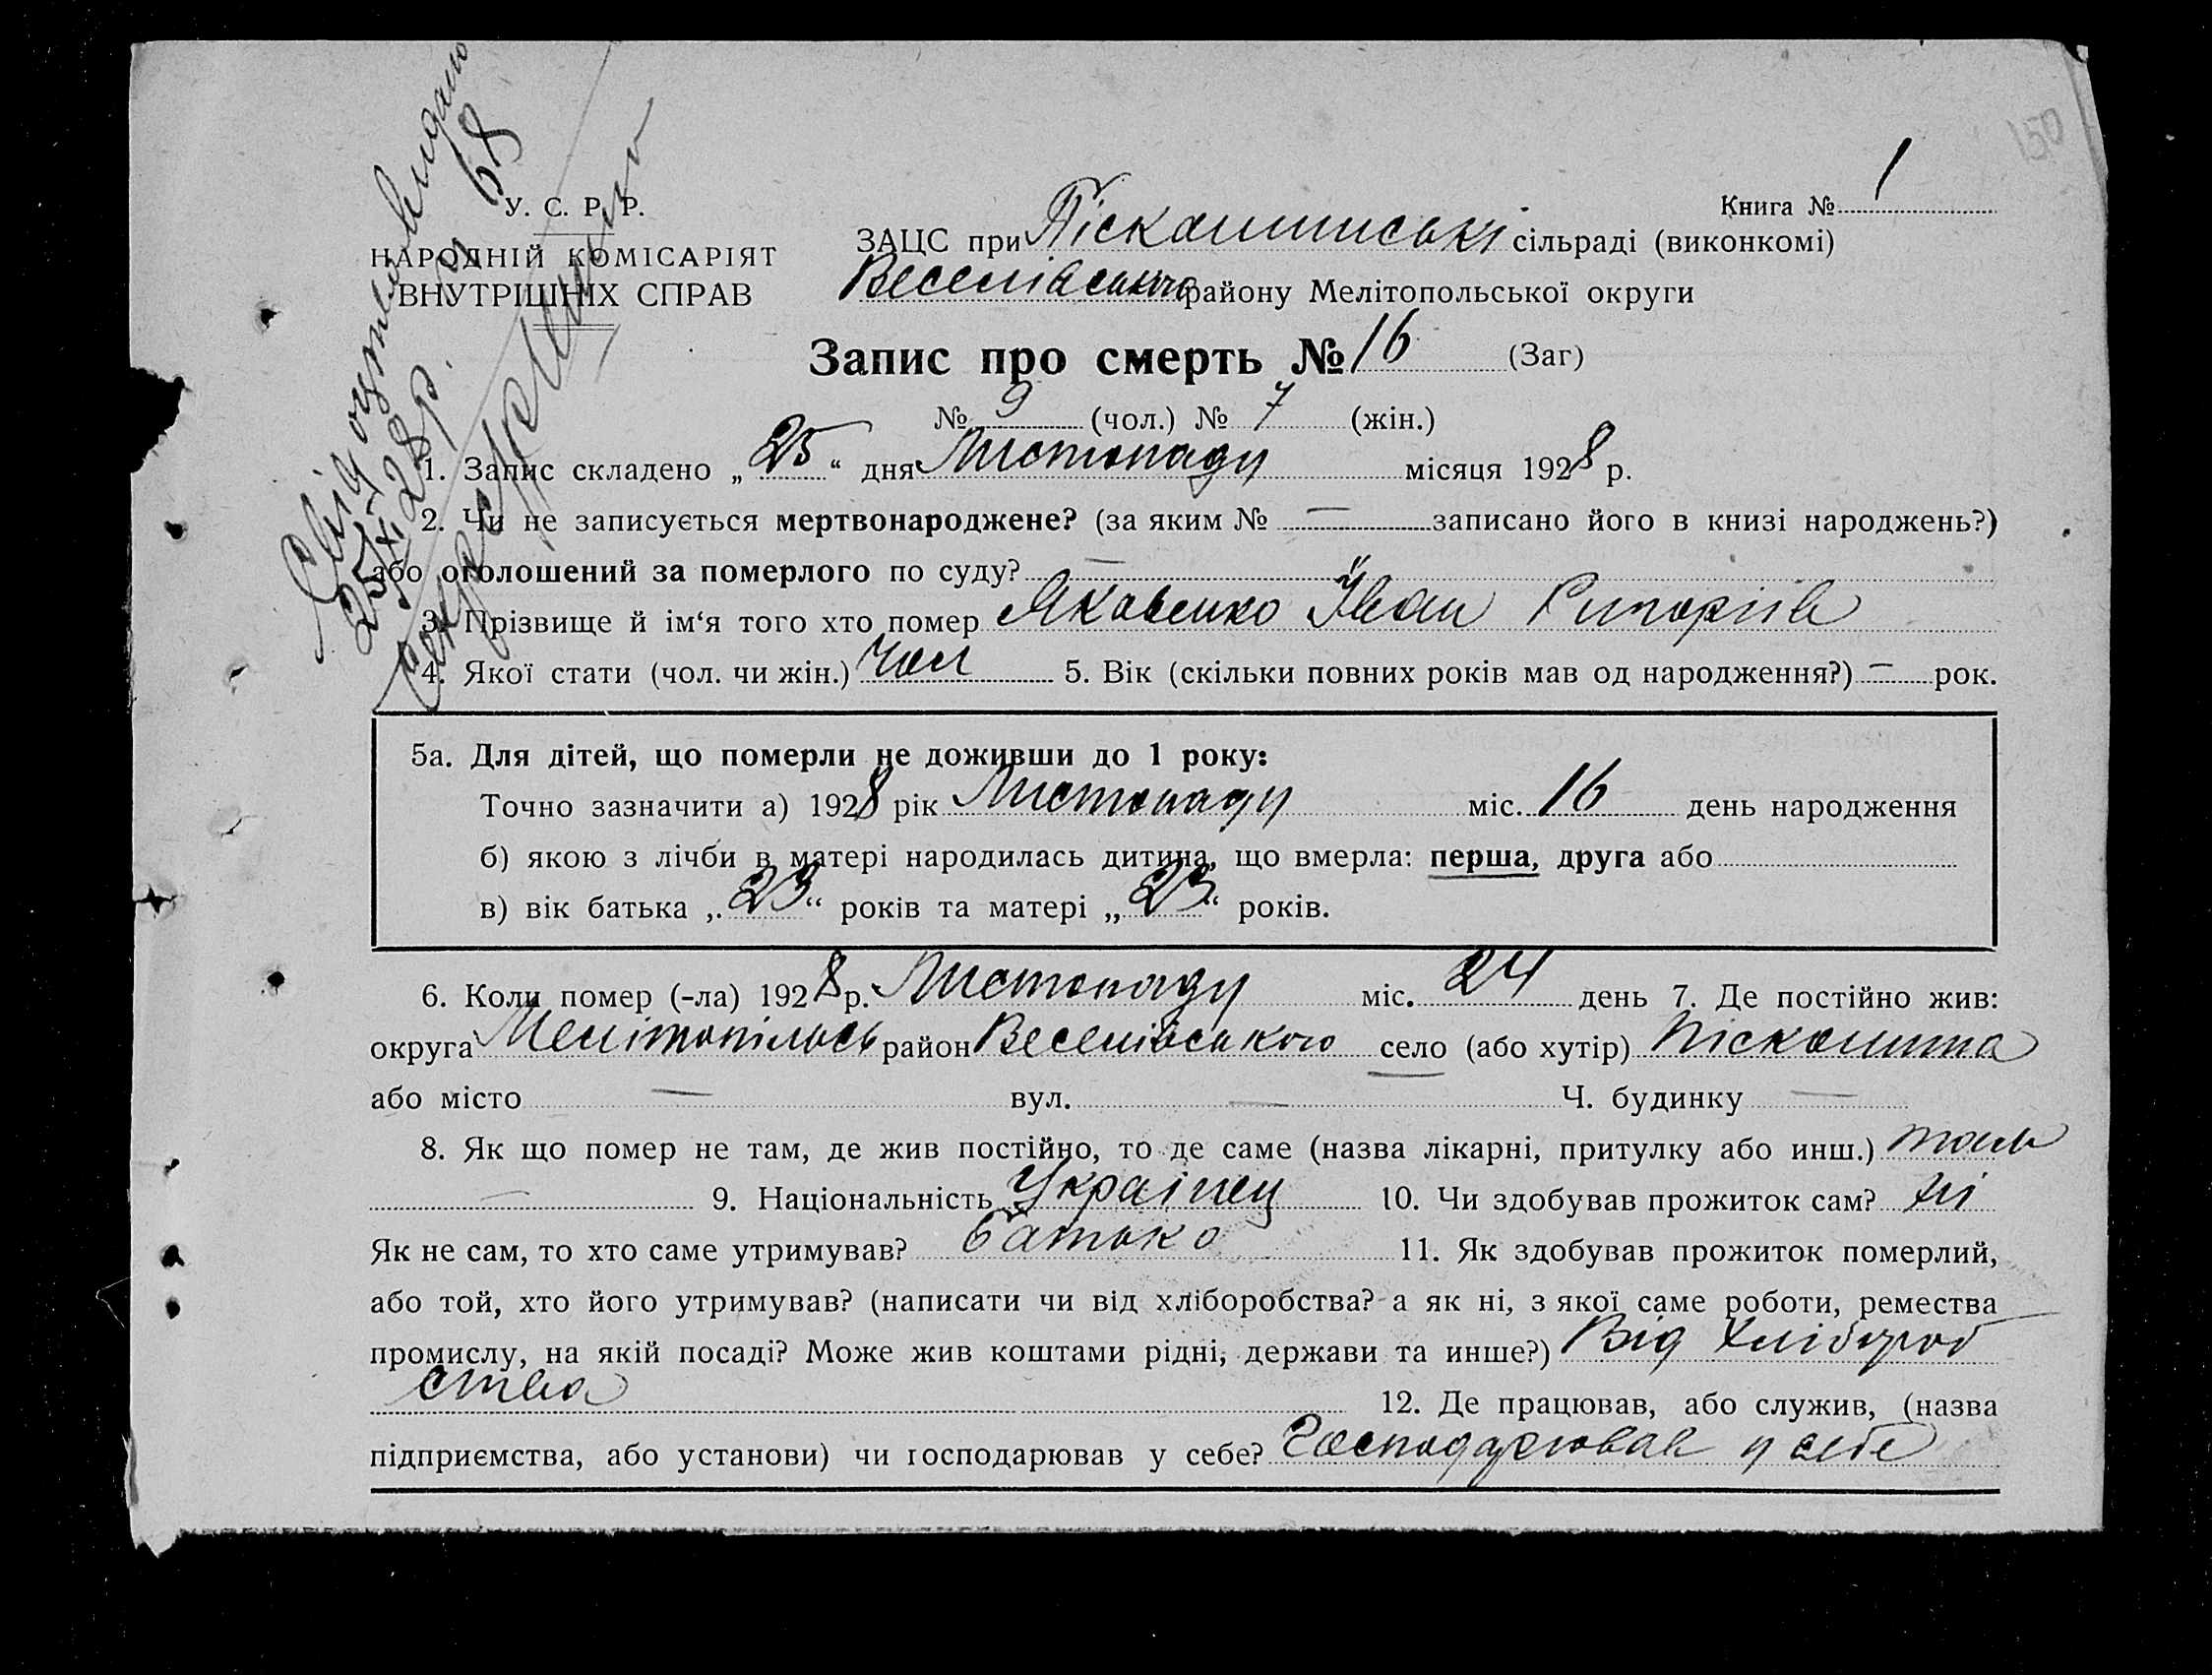 150
Свідоцтво видано
25/XI 28 р. № 68
У. С. Р. Р.
НАРОДНІЙ КОМІСАРІЯТ
ВНУТРІШНІХ СПРАВ
Книга № 1
ЗАЦС при Піскашинські сільраді (виконкомі)
Веселівського району Мелітопольської округи
Запис про смерть № 16 (Заг)
№ 9 (чол.) № 7 (жін.)
1. Запис складено „ 25 “ дня Листопаду місяця 1928 р.
2. Чи не записується мертвонароджене? (за яким № — записано його в книзі народжень?)
або оголошений за померлого по суду? —
3. Прізвище й ім‘я того хто помер Яковенко Іван Григоріів
4. Якої стати (чол. чи жін.) Чол 5. Вік (скільки повних років мав од народження?) — рок.
5а. Для дітей, що померли не доживши до 1 року:
Точно зазначити а) 1928 рік Листопаду міс. 16 день народження
б) якою з лічби в матері народилась дитина, що вмерла: перша, друга або
в) вік батька „ 23 “ років та матері „ 23 “ років.
6. Коли помер (-ла) 1928 р. Листопаду міс. 24 день 7. Де постійно жив:
округа Мелітопільськ район Веселівського село (або хутір) Піскашина
або місто — вул. — Ч. будинку —
8. Як що помер не там, де жив постійно, то де саме (назва лікарні, притулку або инш.) там
— 9. Національність Українец 10. Чи здобував прожиток сам? ні
Як не сам, то хто саме утримував? батько 11. Як здобував прожиток померлий,
або той, хто його утримував? (написати чи від хліборобства? а як ні, з якої саме роботи, ремества
промислу, на якій посаді? Може жив коштами рідні, держави та инше?) Від хлібороб
ства 12. Де працював, або служив, (назва
підприємства, або установи) чи господарював у себе? Господарював у себе